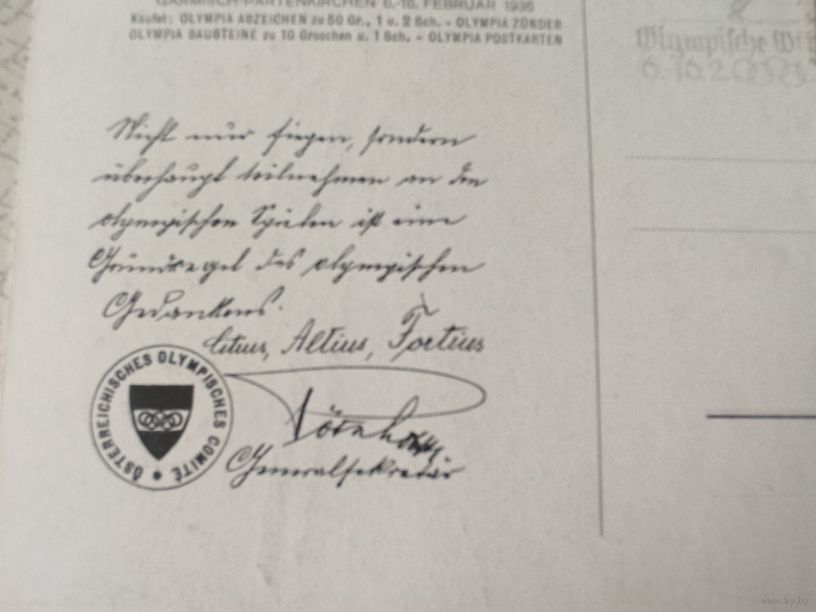 GARMISCH-PARTENKIRCHEN 6.-16. FEBRUAR 1936
Kaufet: OLYMPIA ABZEICHEN zu 50 Gr., 1 u. 2 Sch. - OLYMPIA ZÜNDER
OLYMPIA BAUSTEINE zu 10 Groschen u. 1 Sch. - OLYMPIA POSTKARTEN
Olympische Wi
6.-16.2.
Nicht nur siegen, sondern
überhaupt teilnehmen an den
olympischen Spielen ist eine
Grundregel des olympischen
Gedankens.
Citius, Altius, Fortius
ÖSTERREICHISCHES OLYMPISCHES COMITÉ
Generalsekretär
www.ay.by